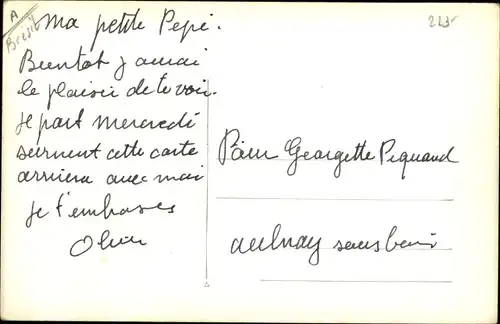 A
Brésil
Ma petite Pepé.
Bientot j'aurai
le plaisir de te voir.
Je part mercredi
surment cette carte
arrivera avec moi
je t'embrasse
Pour Georgette Pequand
aulnay sous bois